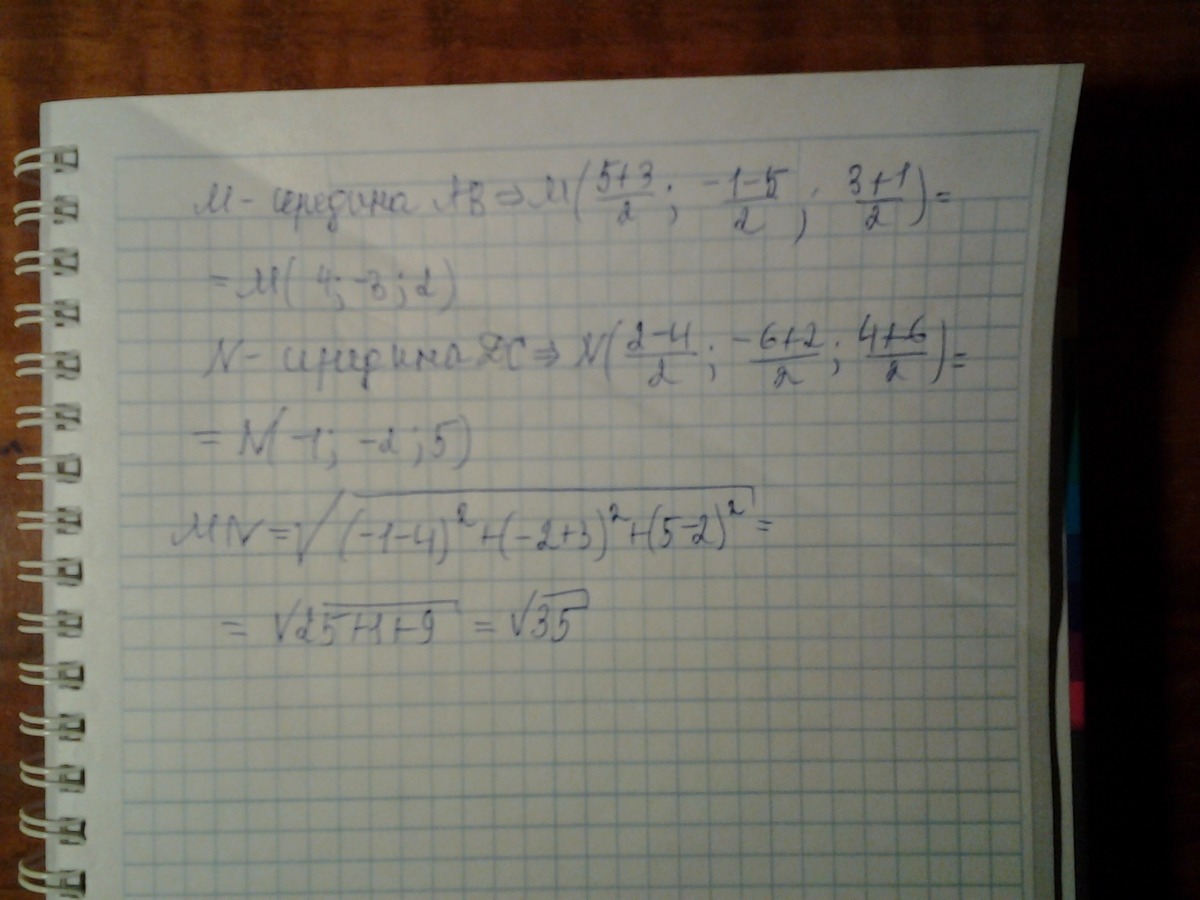 M - середина AB ⇒ M(5+3/2; -1-5/2; 3+1/2) =
= M( 4; -3; 2)
N - середина DC ⇒ N(2-4/2; -6+2/2; 4+6/2) =
= N( -1; -2; 5)
MN = √(-1-4)² + (-2+3)² + (5-2)² =
= √25+1+9 = √35